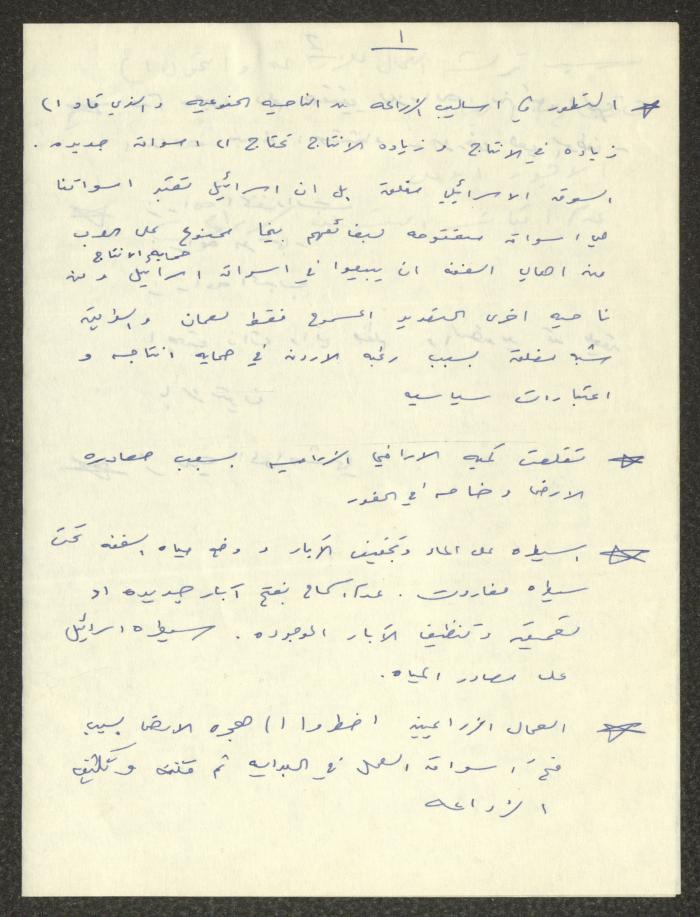 ١
التطور في اساليب الزراعه من الناحيه النوعيه والذي قاد الى
زياده في الانتاج وزياده الانتاج تحتاج الى اسواق جديده .
السوق الاسرائيلي مغلقة بل ان اسرائيل تعتبر اسواقنا
هي اسواق مفتوحه لبضائعهم بينما ممنوع على العرب
حماية الانتاج
من اهالي الضفه ان يبيعوا في اسواق اسرائيل ومن
ناحيه اخرى التصدير المسموح فقط لعمان والسوق
شبه مغلقة بسبب رغبه الاردن في حمايه انتاجه و
اعتبارات سياسيه
تقلصت كميه الاراضي الزراعيه بسبب مصادره
الارض وخاصه في الغور
السيطره على الماء وتجفيف الآبار و وضع مياه الضفه تحت
سيطره مفاروت . عدم السماح بفتح آبار جديده او
تعميق وتنظيف الآبار الموجوده . سيطره اسرائيل
على مصادر المياه .
العمال الزراعيين اضطروا الى هجره الارض بسبب
فتح اسواق العمل في البدايه ثم قلته وتكثيف
الزراعه